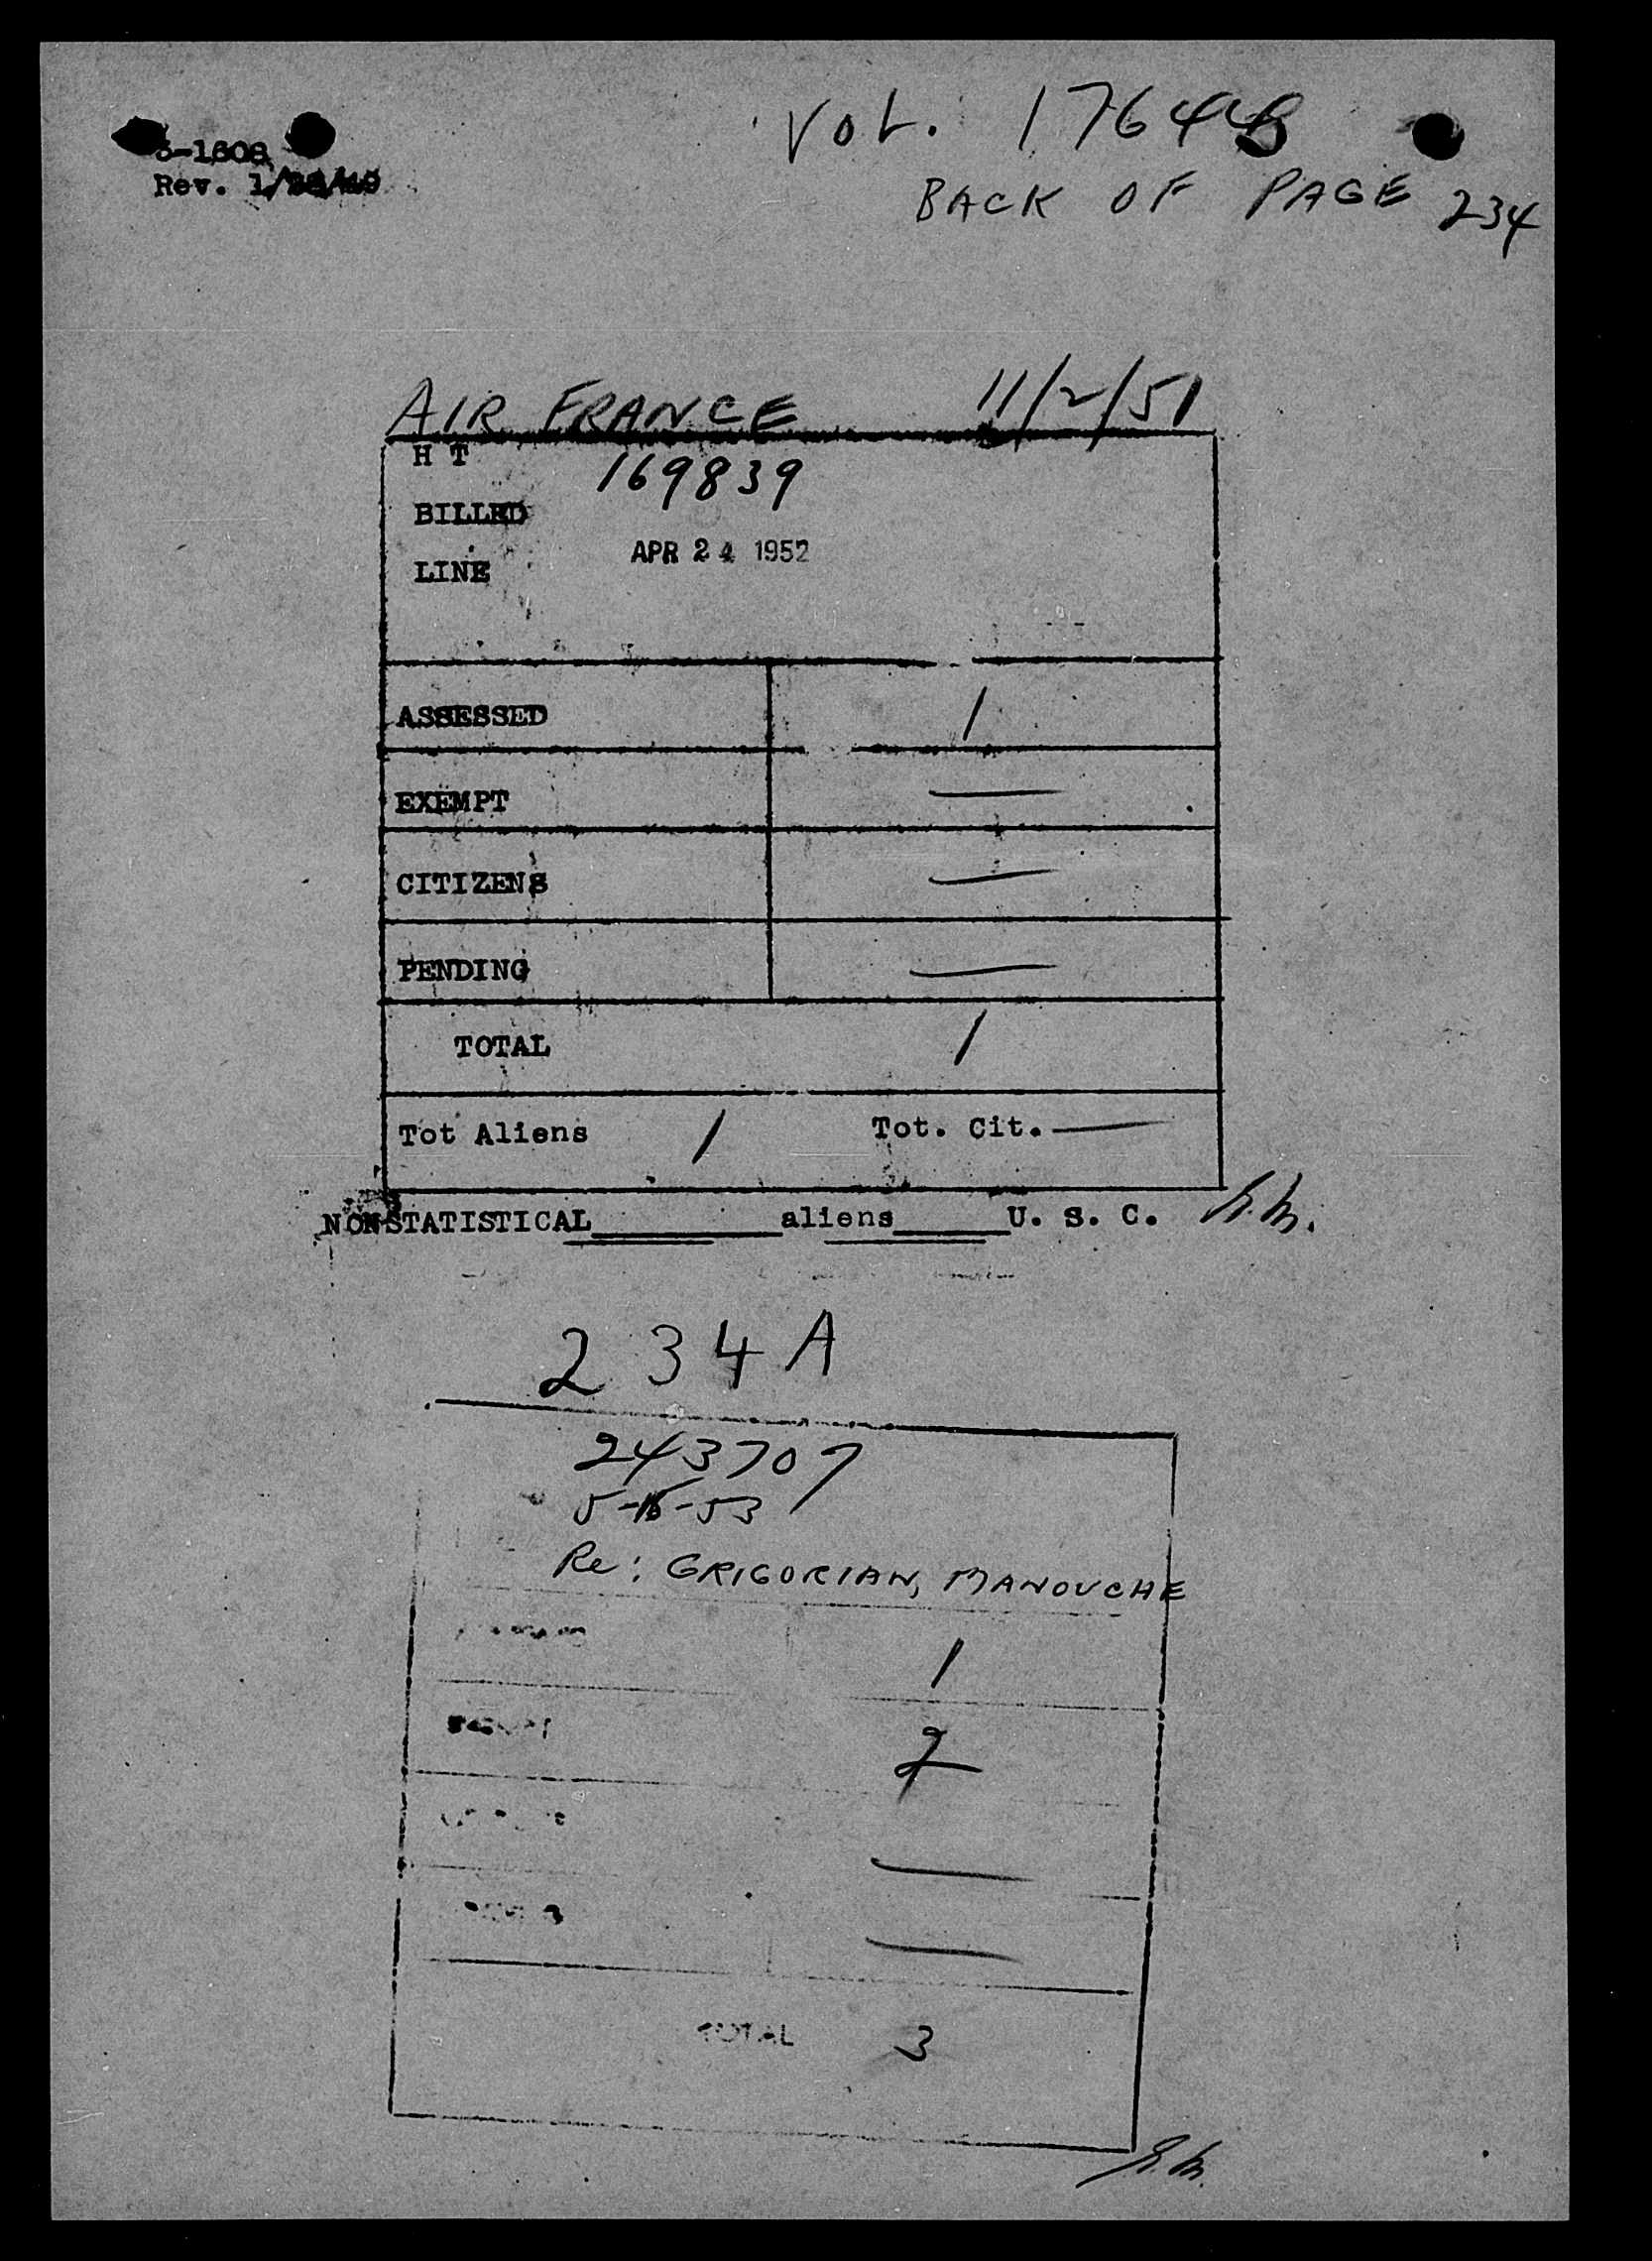 VOL. 17644B
BACK OF PAGE 234
3-1608
Rev.
AIR FRANCE 11/2/51
H T 169839
BILLED
LINE APR 24 1952
ASSESSED 1
EXEMPT —
CITIZENS —
PENDING —
TOTAL 1
Tot Aliens 1 Tot. Cit. —
NONSTATISTICAL______aliens____U. S. C. h.m.
234A
243707
5-15-53
Re: GRIGORIAN, MANOUCHE
1
2
—
—
TOTAL 3
h.m.